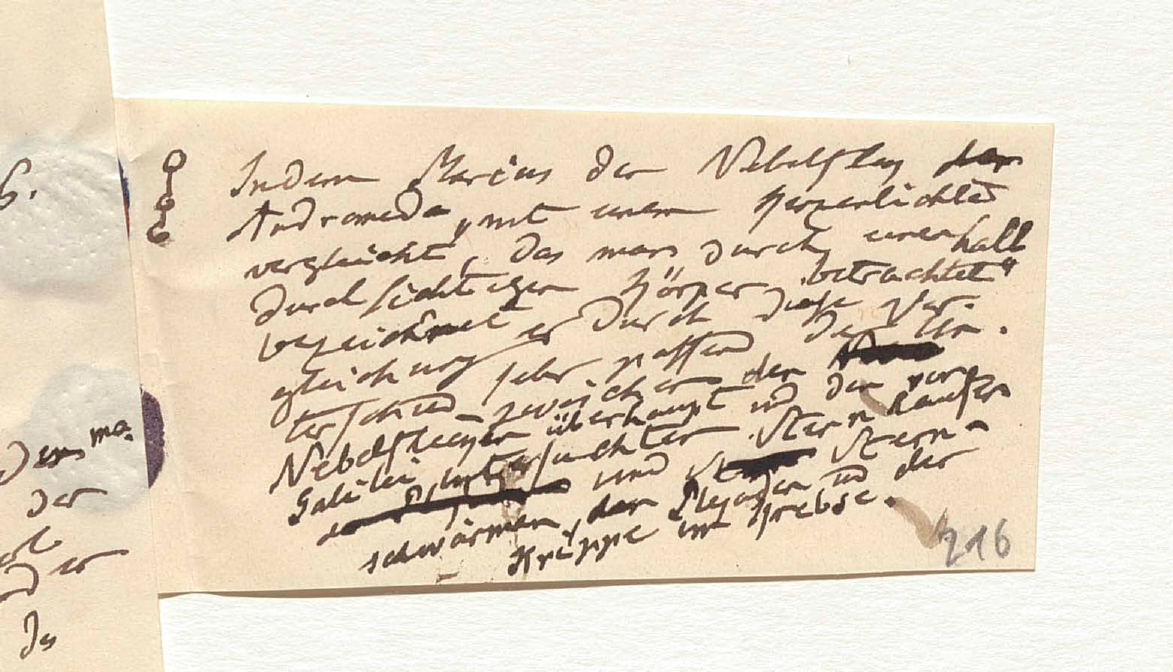 6.
Indem Marius den Nebelfleck der
Andromeda „mit einem Kerzenlichte
vergleicht, das man durch einen halb
durchsichtigen Körper betrachtet“
bezeichnet er durch diese Ver-
gleichung sehr passend den Un-
terschied zwischen den
Nebelflecken überhaupt und den von
Galilei untersuchten Sternhaufen
und Stern-
schwärmen, den Plejaden und der
Krippe im Krebse.
216
dem
der
der